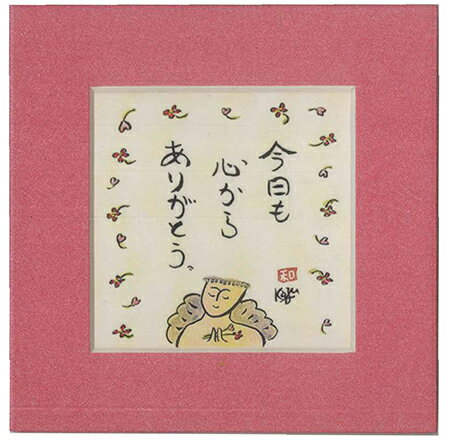 今日も
心から
ありがとう、
和